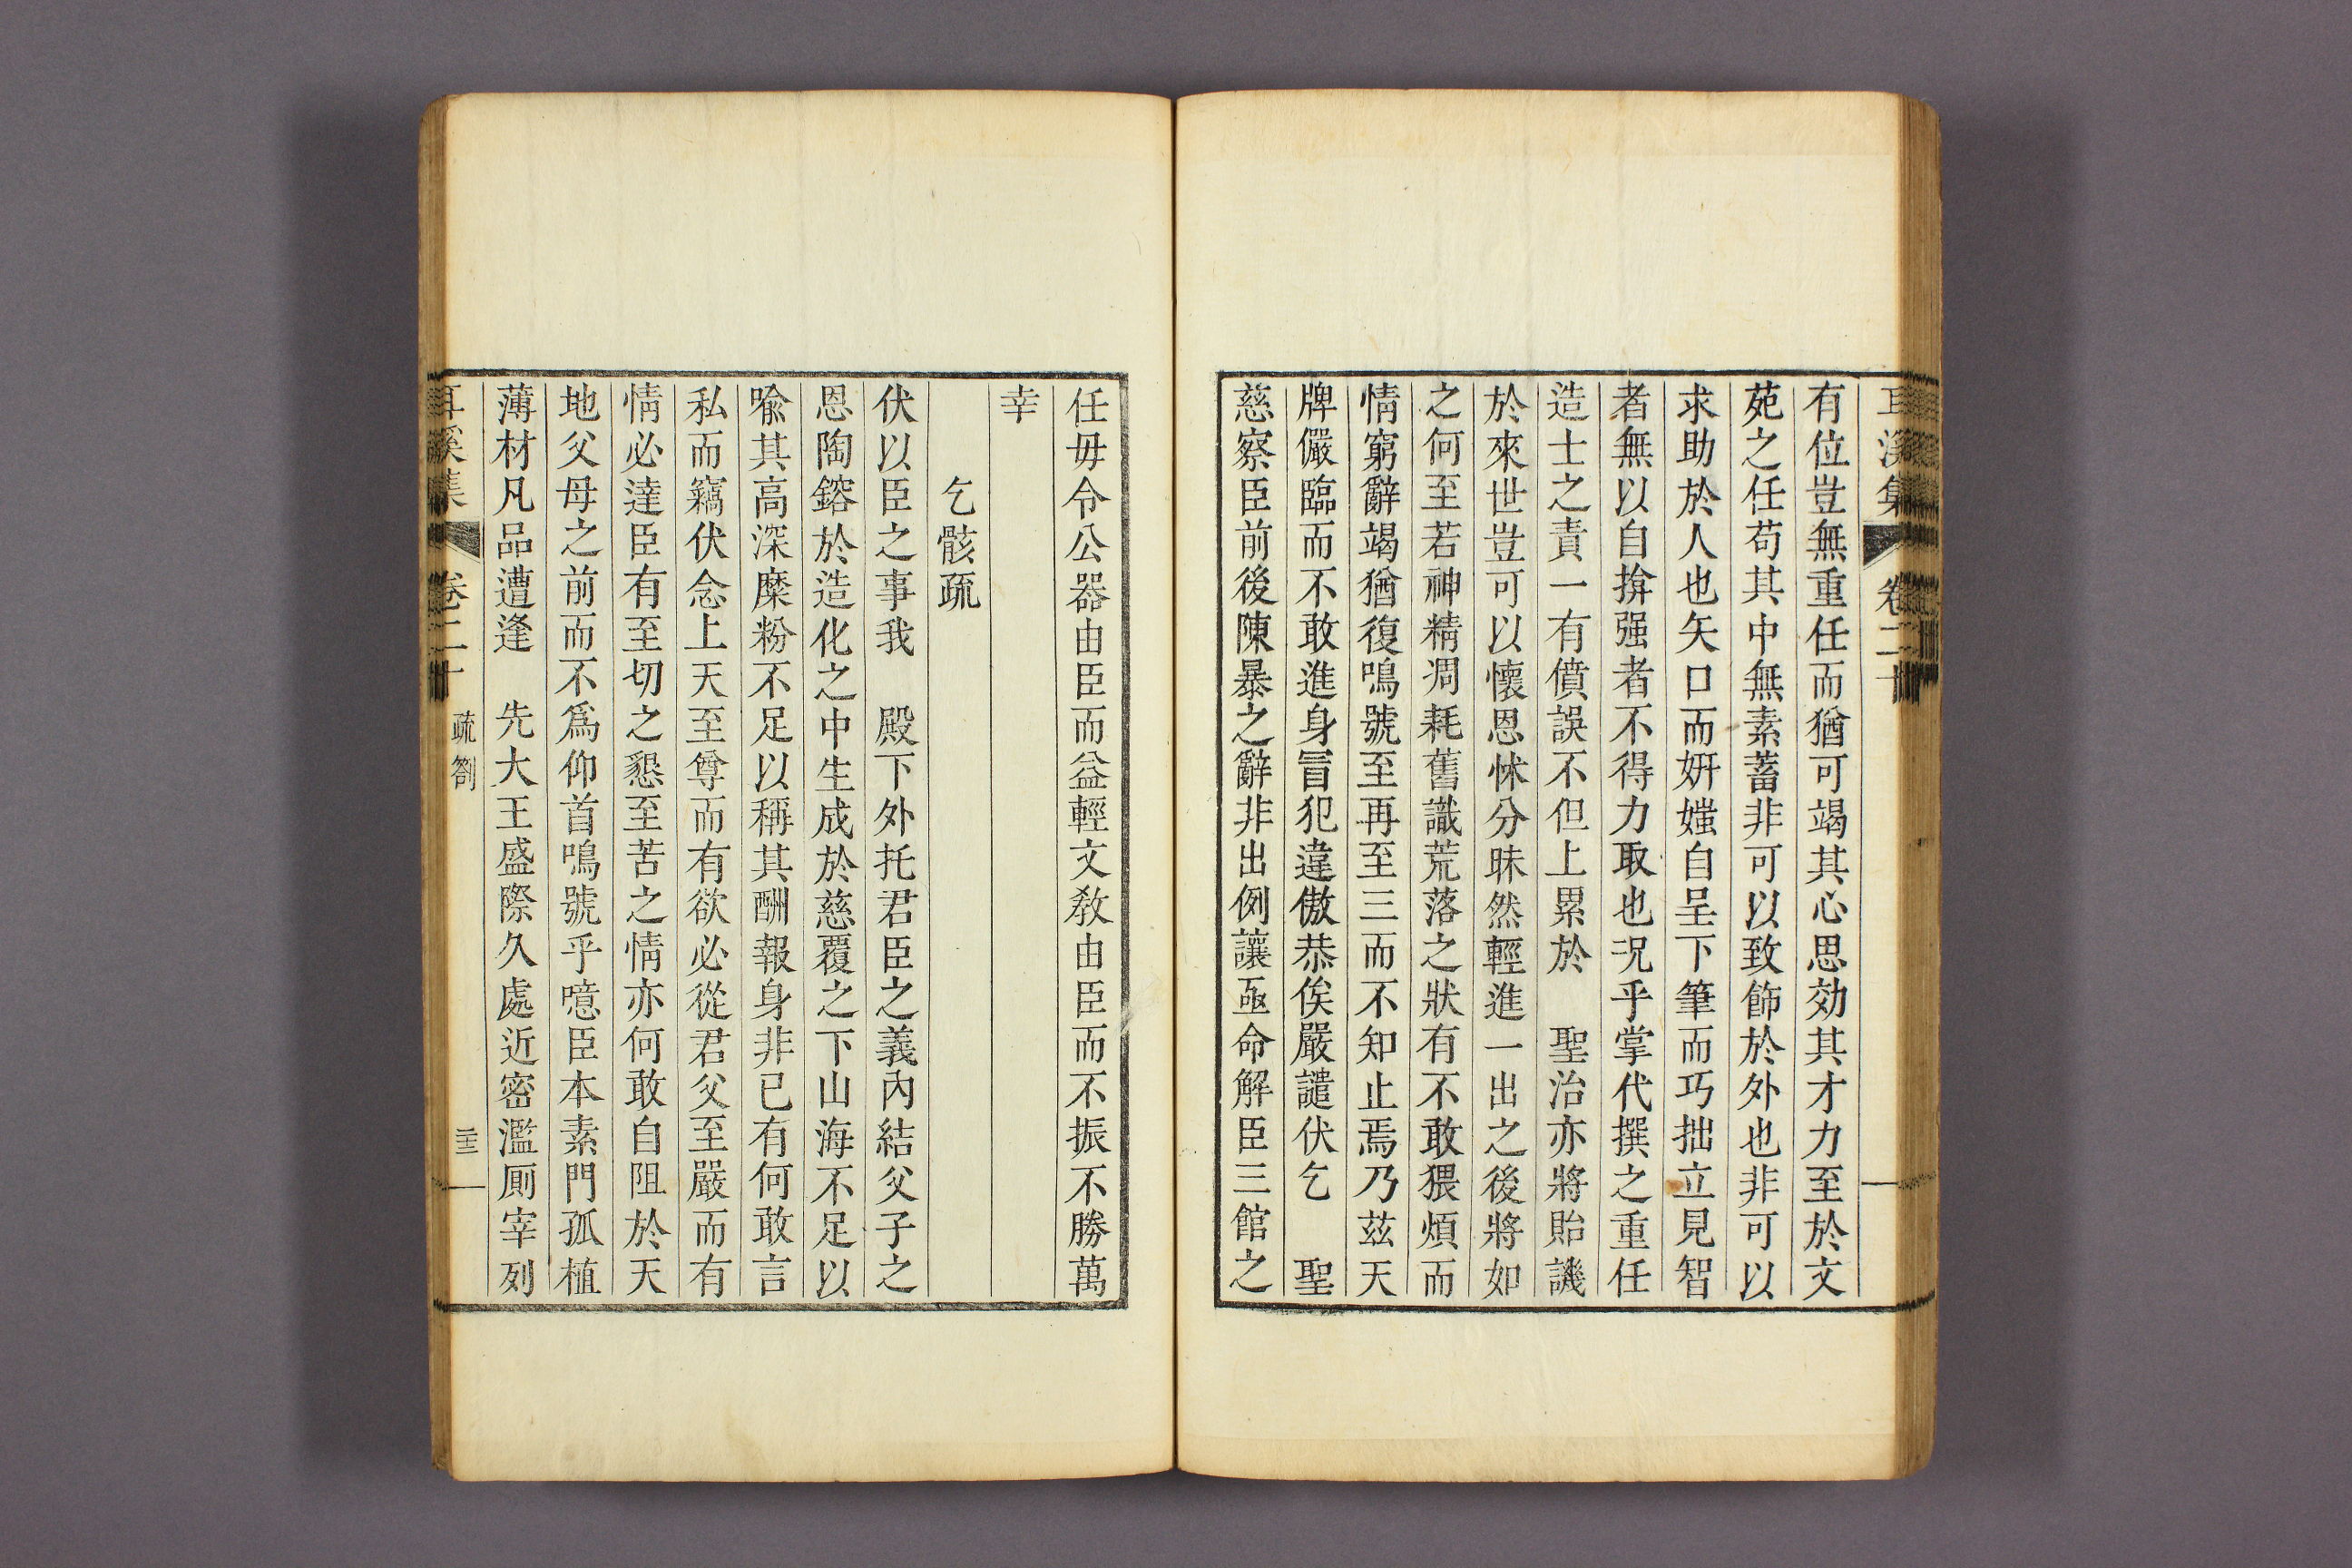 耳溪集 卷二十
有位豈無重任而猶可竭其心思効其才力至於文
苑之任苟其中無素蓄非可以致飾於外也非可以
求助於人也矢口而姸媸自呈下筆而巧拙立見智
者無以自揜强者不得力取也况乎掌代撰之重任
造士之責一有僨誤不但上累於 聖治亦將貽譏
於來世豈可以懷恩怵分昧然輕進一出之後將如
之何至若神精凋耗舊識荒落之狀有不敢猥煩而
情窮辭竭猶復鳴號至再至三而不知止焉乃玆天
牌儼臨而不敢進身冒犯違傲恭俟嚴譴伏乞 聖
慈察臣前後陳暴之辭非出例讓亟命解臣三館之
任毋令公器由臣而益輕文敎由臣而不振不勝萬
幸
乞骸疏
伏以臣之事我 殿下外托君臣之義內結父子之
恩陶鎔於造化之中生成於慈覆之下山海不足以
喩其高深糜粉不足以稱其酬報身非已有何敢言
私而竊伏念上天至尊而有欲必從君父至嚴而有
情必達臣有至切之懇至苦之情亦何敢自阻於天
地父母之前而不爲仰首鳴號乎噫臣本素門孤植
薄材凡品遭逢 先大王盛際久處近密濫厠宰列
耳溪集 卷二十 疏箚 三十三